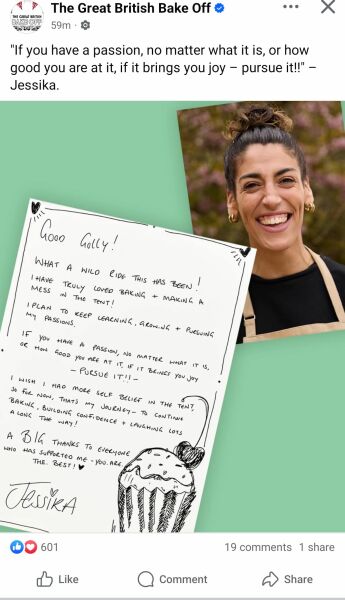 THE GREAT BRITISH
BAKE OFF
The Great British Bake Off
59m
"If you have a passion, no matter what it is, or how
good you are at it, if it brings you joy – pursue it!!" –
Jessika.
Good Golly!
WHAT A WILD RIDE THIS HAS BEEN!
I HAVE TRULY LOVED BAKING + MAKING A
MESS IN THE TENT!
I PLAN TO KEEP LEARNING, GROWING + PURSUING
MY PASSIONS.
IF YOU HAVE A PASSION, NO MATTER WHAT IT IS,
OR HOW GOOD YOU ARE AT IT, IF IT BRINGS YOU JOY
– PURSUE IT!! –
I WISH I HAD MORE SELF BELIEF IN THE TENT,
SO FOR NOW, THAT'S MY JOURNEY – TO CONTINUE
BAKING, BUILDING CONFIDENCE + LAUGHING LOTS
ALONG THE WAY!
A BIG THANKS TO EVERYONE
WHO HAS SUPPORTED ME – YOU ARE
THE BEST!
JESSIKA
601
19 comments 1 share
Like
Comment
Share